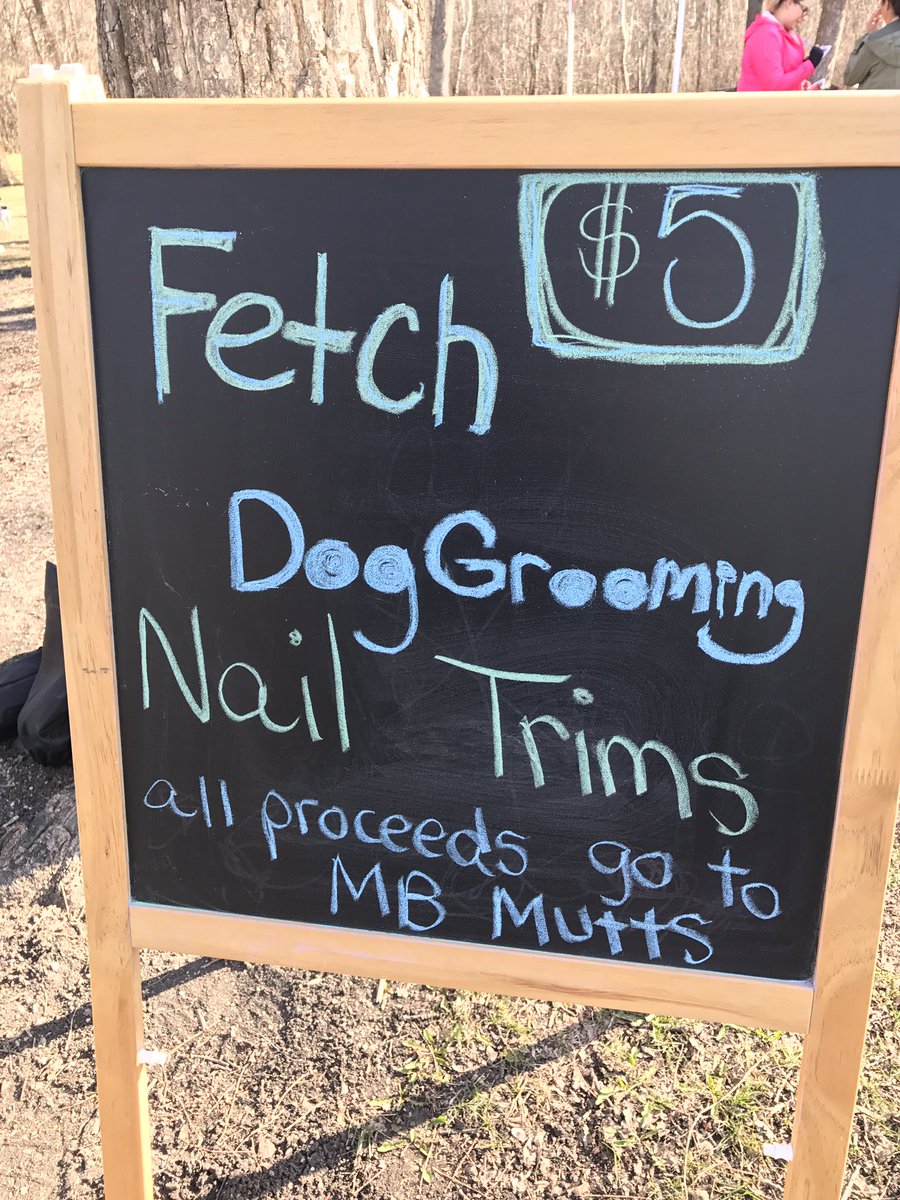 Fetch $5
Dog Grooming
Nail Trims
all proceeds go to
MB Mutts